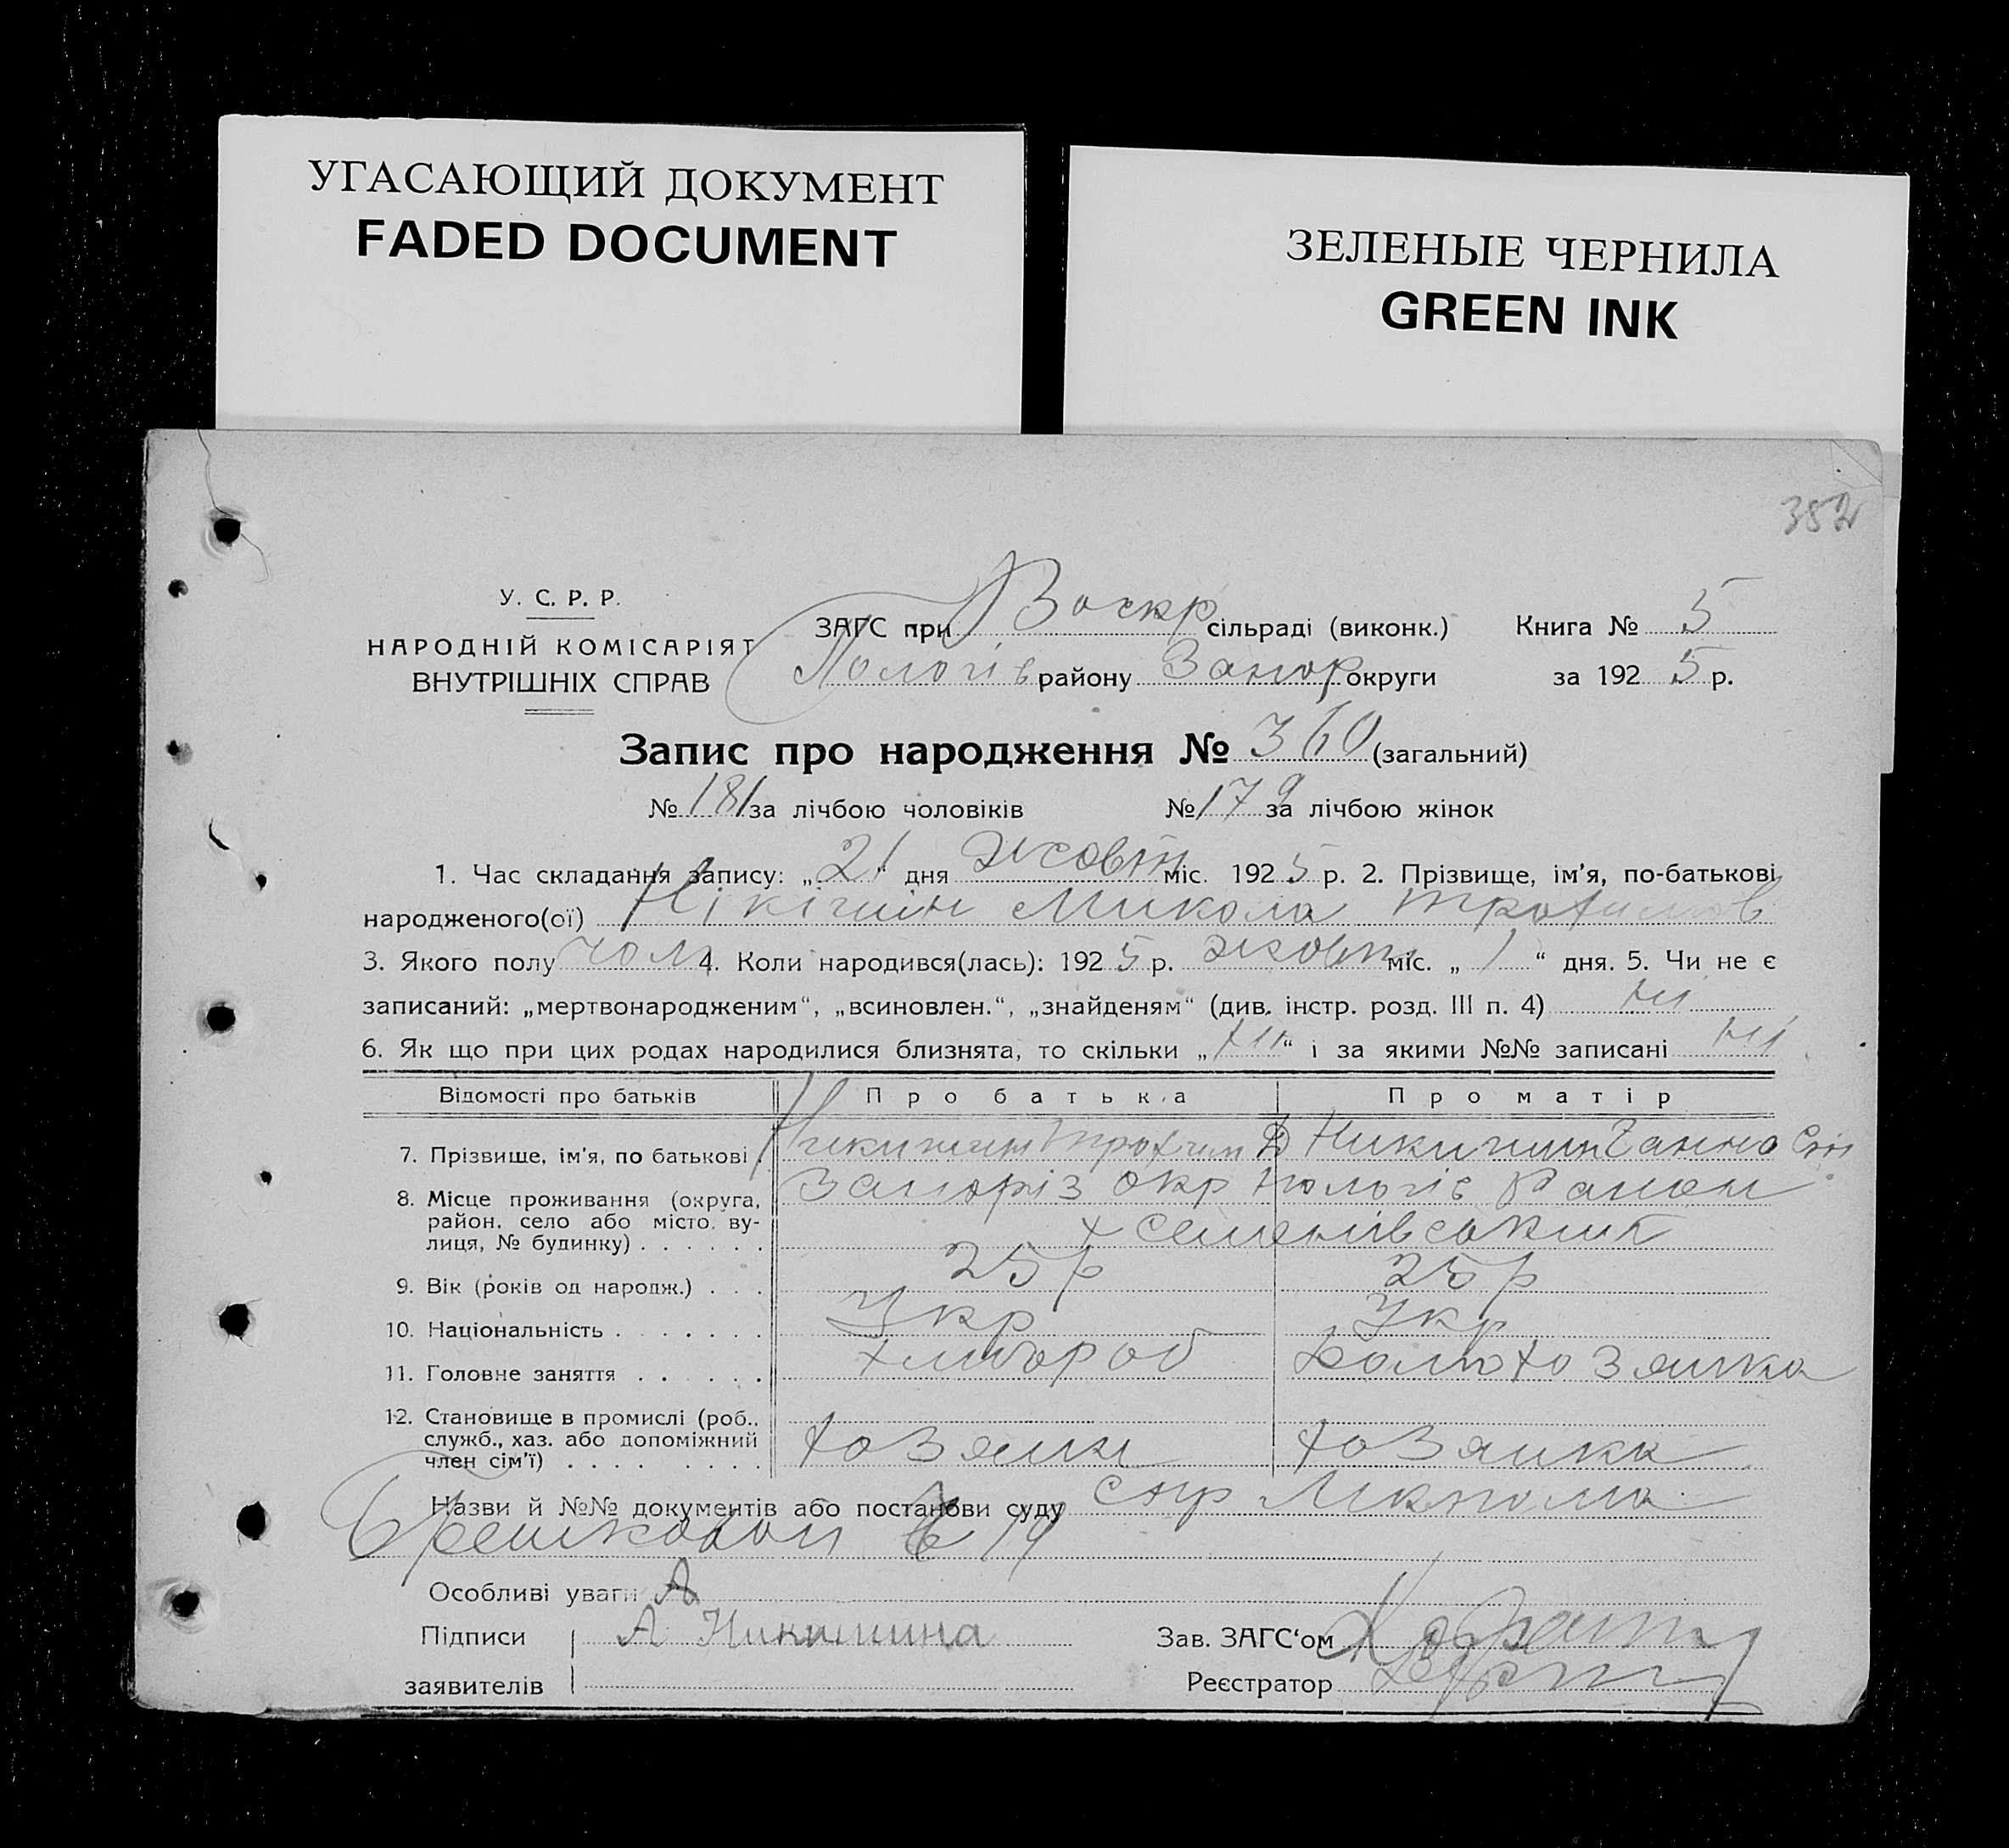 УГАСАЮЩИЙ ДОКУМЕНТ
FADED DOCUMENT
ЗЕЛЕНЫЕ ЧЕРНИЛА
GREEN INK
352
У. С. Р. Р.
НАРОДНІЙ КОМІСАРІЯТ
ВНУТРІШНІХ СПРАВ
ЗАГС при Воскр сільраді (виконк.) Книга № 5
Пологів району Запор округи за 1925 р.
Запис про народження № 360 (загальний)
№ 181 за лічбою чоловіків № 179 за лічбою жінок
1. Час складання запису: „21“ дня жовтн міс. 1925 р. 2. Прізвище, ім'я, по-батькові
народженого(ої) Нікішин Микола Трохимов
3. Якого полу чол 4. Коли народився(лась): 1925 р. жовтн міс. „1“ дня. 5. Чи не є
записаний: „мертвонародженим“, „всиновлен.“, „знайденям“ (див. інстр. розд. III п. 4) ні
6. Як що при цих родах народилися близнята, то скільки „ні“ і за якими №№ записані ні
Відомості про батьків Про батька Про матір
7. Прізвище, ім'я, по батькові Никишин Трохим Никишин Ганна
8. Місце проживання (округа, район, село або місто, вулиця, № будинку) Запоріз окр Пологів Район
х Семенівський
9. Вік (років од народж.) 25 р 25 р
10. Національність Укр Укр
11. Головне заняття хлібороб домохозяйка
12. Становище в промислі (роб., служб., хаз. або допоміжний член сім'ї) хозяин хозяйка
Назви й №№ документів або постанови суду
№ 19
Особливі уваги
Підписи А Никишина Зав. ЗАГС'ом
заявителів Реєстратор